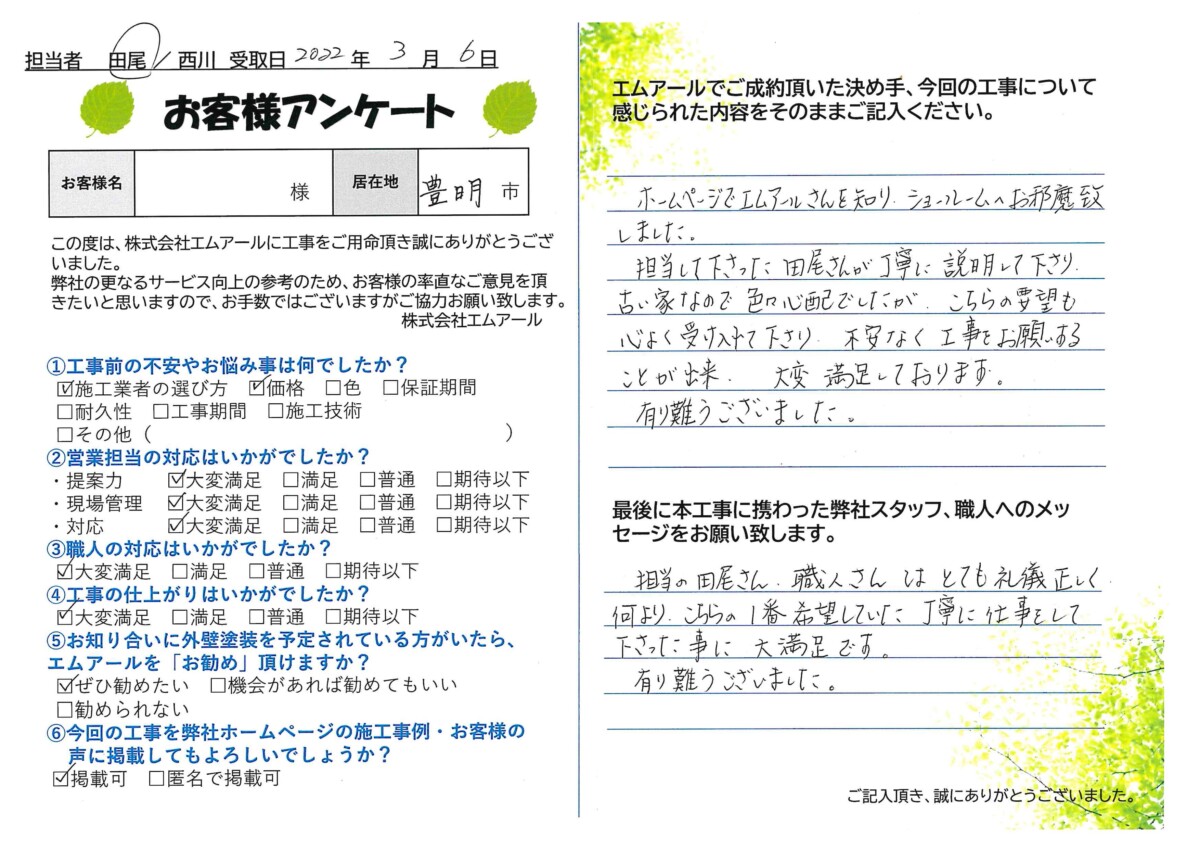 担当者 田尾 / 西川 受取日 2022 年 3 月 6 日
お客様アンケート
お客様名 様 居在地 豊明 市
この度は、株式会社エムアールに工事をご用命頂き誠にありがとうござ
いました。
弊社の更なるサービス向上の参考のため、お客様の率直なご意見を頂
きたいと思いますので、お手数ではございますがご協力お願い致します。
株式会社エムアール
①工事前の不安やお悩み事は何でしたか？
☑施工業者の選び方 ☑価格 □色 □保証期間
□耐久性 □工事期間 □施工技術
□その他（ ）
②営業担当の対応はいかがでしたか？
・提案力 ☑大変満足 □満足 □普通 □期待以下
・現場管理 ☑大変満足 □満足 □普通 □期待以下
・対応 ☑大変満足 □満足 □普通 □期待以下
③職人の対応はいかがでしたか？
☑大変満足 □満足 □普通 □期待以下
④工事の仕上がりはいかがでしたか？
☑大変満足 □満足 □普通 □期待以下
⑤お知り合いに外壁塗装を予定されている方がいたら、
エムアールを「お勧め」頂けますか？
☑ぜひ勧めたい □機会があれば勧めてもいい
□勧められない
⑥今回の工事を弊社ホームページの施工事例・お客様の
声に掲載してもよろしいでしょうか？
☑掲載可 □匿名で掲載可
エムアールでご成約頂いた決め手、今回の工事について
感じられた内容をそのままご記入ください。
ホームページでエムアールさんを知り、ショールームへお邪魔致
しました。
担当して下さった田尾さんが丁寧に説明して下さり、
古い家なので色々心配でしたが、こちらの要望も
心よく受け入れて下さり、不安なく工事をお願いする
ことが出来、大変満足しております。
有り難うございました。
最後に本工事に携わった弊社スタッフ、職人へのメッ
セージをお願い致します。
担当の田尾さん、職人さんはとても礼儀正しく、
何より、こちらの1番希望していた丁寧に仕事をして
下さった事に大満足です。
有り難うございました。
ご記入頂き、誠にありがとうございました。